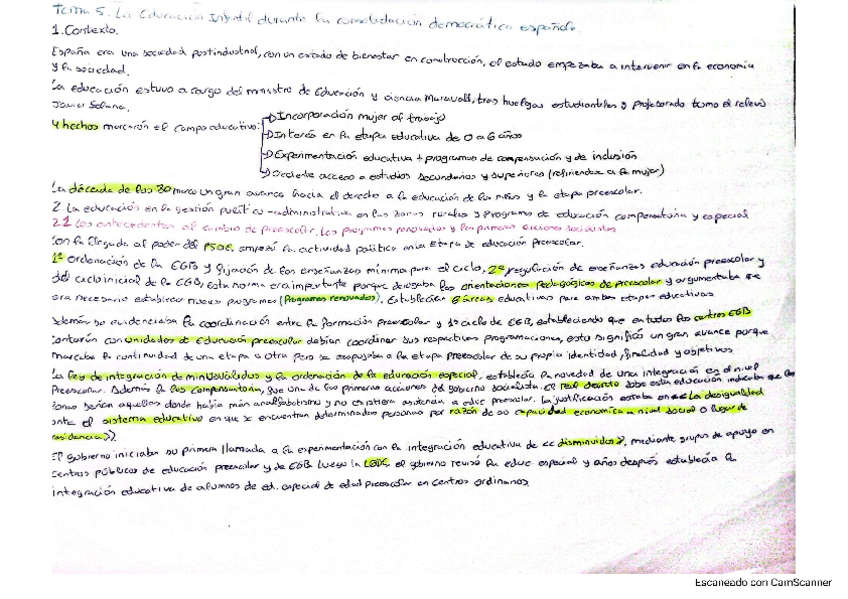 Tema 5. La Educación Infantil durante la consolidación democrática española.
1. Contexto.
España era una sociedad postindustrial, con un estado de bienestar en construcción, el estado empezaba a intervenir en la economía
y la sociedad.
La educación estuvo a cargo del ministro de Educación y ciencia Maravall, tras huelgas estudiantiles y profesorado tomo el relevo
Javier Solana.
4 hechos marcaron el campo educativo:
Incorporación mujer al trabajo
Interés en la etapa educativa de 0 a 6 años
Experimentación educativa + programas de compensación y de inclusión
acceso a estudios secundarios y superiores (refiriendose a la mujer)
La década de los 80 marco un gran avance hacia el derecho a la educación de los niños y la etapa preescolar.
2. La educación en la gestión político-administrativa en las zonas rurales y programa de educación compensatoria y especial
2.1 Los antecedentes al cambio de preescolar. Los programas renovados y las primeras acciones socialistas
Con la llegada al poder del PSOE, empezó la actividad política en la Etapa de educación preescolar.
1º ordenación de la EGB y fijación de las enseñanzas mínima para el ciclo, 2º regulación de enseñanzas educación preescolar y
del ciclo inicial de la EGB, esta norma era importante porque derogaba las orientaciones pedagógicas de preescolar y argumentaba que
era necesario establecer nuevos programas (Programas renovados). Establecían 6 áreas educativas para ambas etapas educativas
Además se evidenciaba la coordinación entre la formación preescolar y 1º ciclo de EGB, estableciendo que en todos los centros EGB
contarán con unidades de Educación preescolar debían coordinar sus respectivas programaciones, esto significó un gran avance porque
marcaba la continuidad de una etapa a otra pero se despojaba a la etapa preescolar de su propia identidad, finalidad y objetivos.
La ley de integración de minusválidos y la ordenación de la educación especial, establecía la novedad de una integración en el nivel
Preescolar. Además la compensatoria, que una de las primeras acciones del gobierno socialista. El real decreto sobe esta educación indicaba que las
zonas serían aquellas donde había más analfabetismo y no existiera asistencia a educ preescolar. La justificación estaba en <<La desigualdad
ante el sistema educativo en que se encuentran determinadas personas por razón de su capacidad económica a nivel social o lugar de
residencia>>.
El gobierno iniciaba su primera llamada a la experimentación con la integración educativa de <<disminuidos>>, mediante grupos de apoyo en
centros públicos de educación preescolar y de EGB. Luego la LODE, el gobierno reguló la educ especial y años después establecía la
integración educativa de alumnos de ed. especial de edad preescolar en centros ordinarios
Escaneado con CamScanner